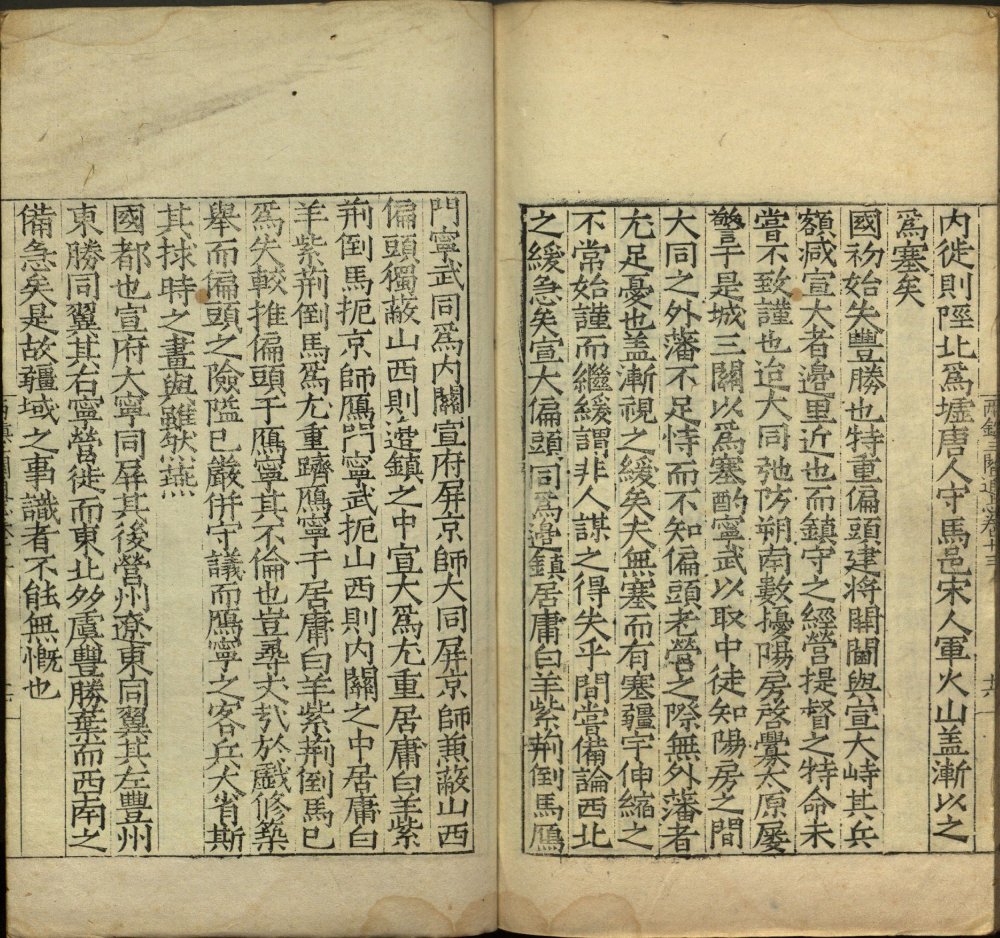 内徙則陘北爲墟唐人守馬邑宋人軍火山盖漸以之
爲塞矣
國初始失豐勝也特重偏頭建将開閫與宣大峙其兵
額减宣大者邊里近也而鎮守之經營提督之特命未
嘗不致謹也迨大同弛防朔南數擾陽房啓釁太原屡
警于是城三關以爲塞酌寧武以取中徒知陽房之間
大同之外藩不足恃而不知偏頭老營之際無外藩者
尤足憂也盖漸視之緩矣夫無塞而有塞疆宇伸縮之
不常始謹而繼緩謂非人謀之得失乎間嘗備論西北
之緩急矣宣大偏頭同爲邊鎮居庸白羊紫荆倒馬鴈
門寧武同爲内關宣府屏京師大同屏京師兼蔽山西
偏頭獨蔽山西則邊鎮之中宣大爲尤重居庸白羊紫
荆倒馬扼京師鴈門寧武扼山西則内關之中居庸白
羊紫荆倒馬爲尤重躋鴈寧于居庸白羊紫荆倒馬已
爲失較推偏頭于鴈寧其不倫也豈尋丈扒於戲修築
舉而偏頭之險隘已嚴併守議而鴈寧之客兵大省斯
其捄時之畫與雖然燕
國都也宣府大寧同屏其後營州遼東同翼其左豊州
東勝同翼其右寧營徙而東北多虞豐勝棄而西南之
備急矣是故疆域之事識者不能無慨也